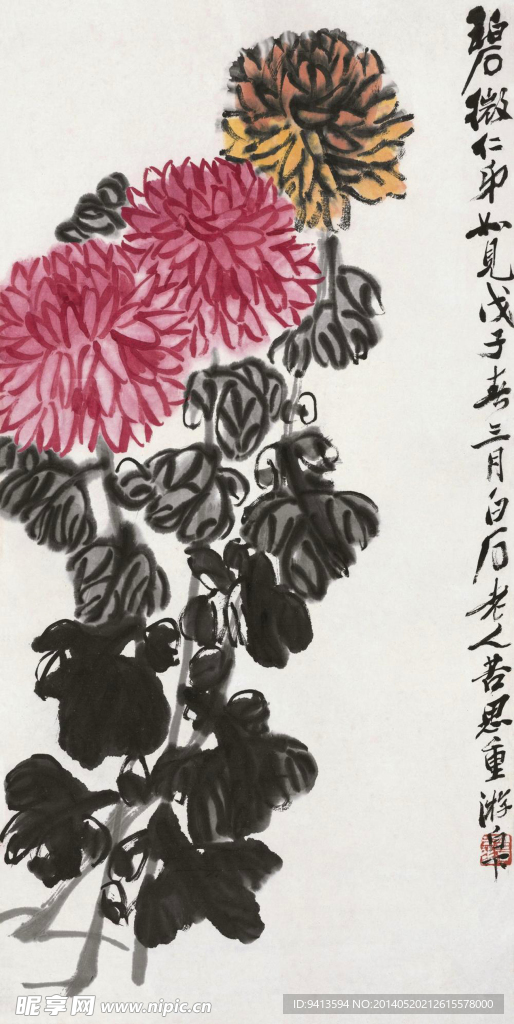 碧微仁弟如見戊子春三月白石老人苦思重游皋
昵享网 www.nipic.cn
ID:9413594 NO:20140520212615578000